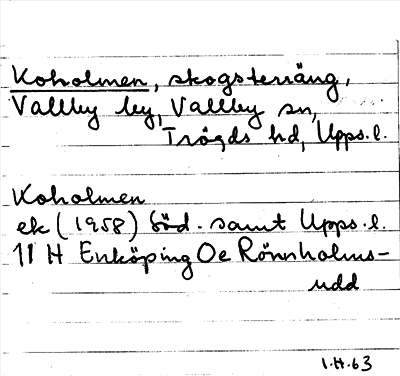 Koholmen, skogsterräng,
Vallby by, Vallby sn,
Trögds hd, Upps.l.
Koholmen
ek (1958) Söd. samt Upps.l.
11 H Enköping Oe Rönnholms-
udd
1.H.63